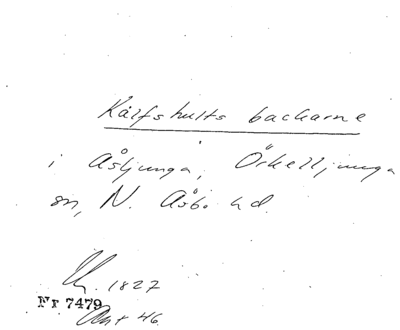 Kålfshults backarne
i Åsljunga, Örkelljunga
sn, N. Åsbo hd.
1827
Nr 7479
Akt 46